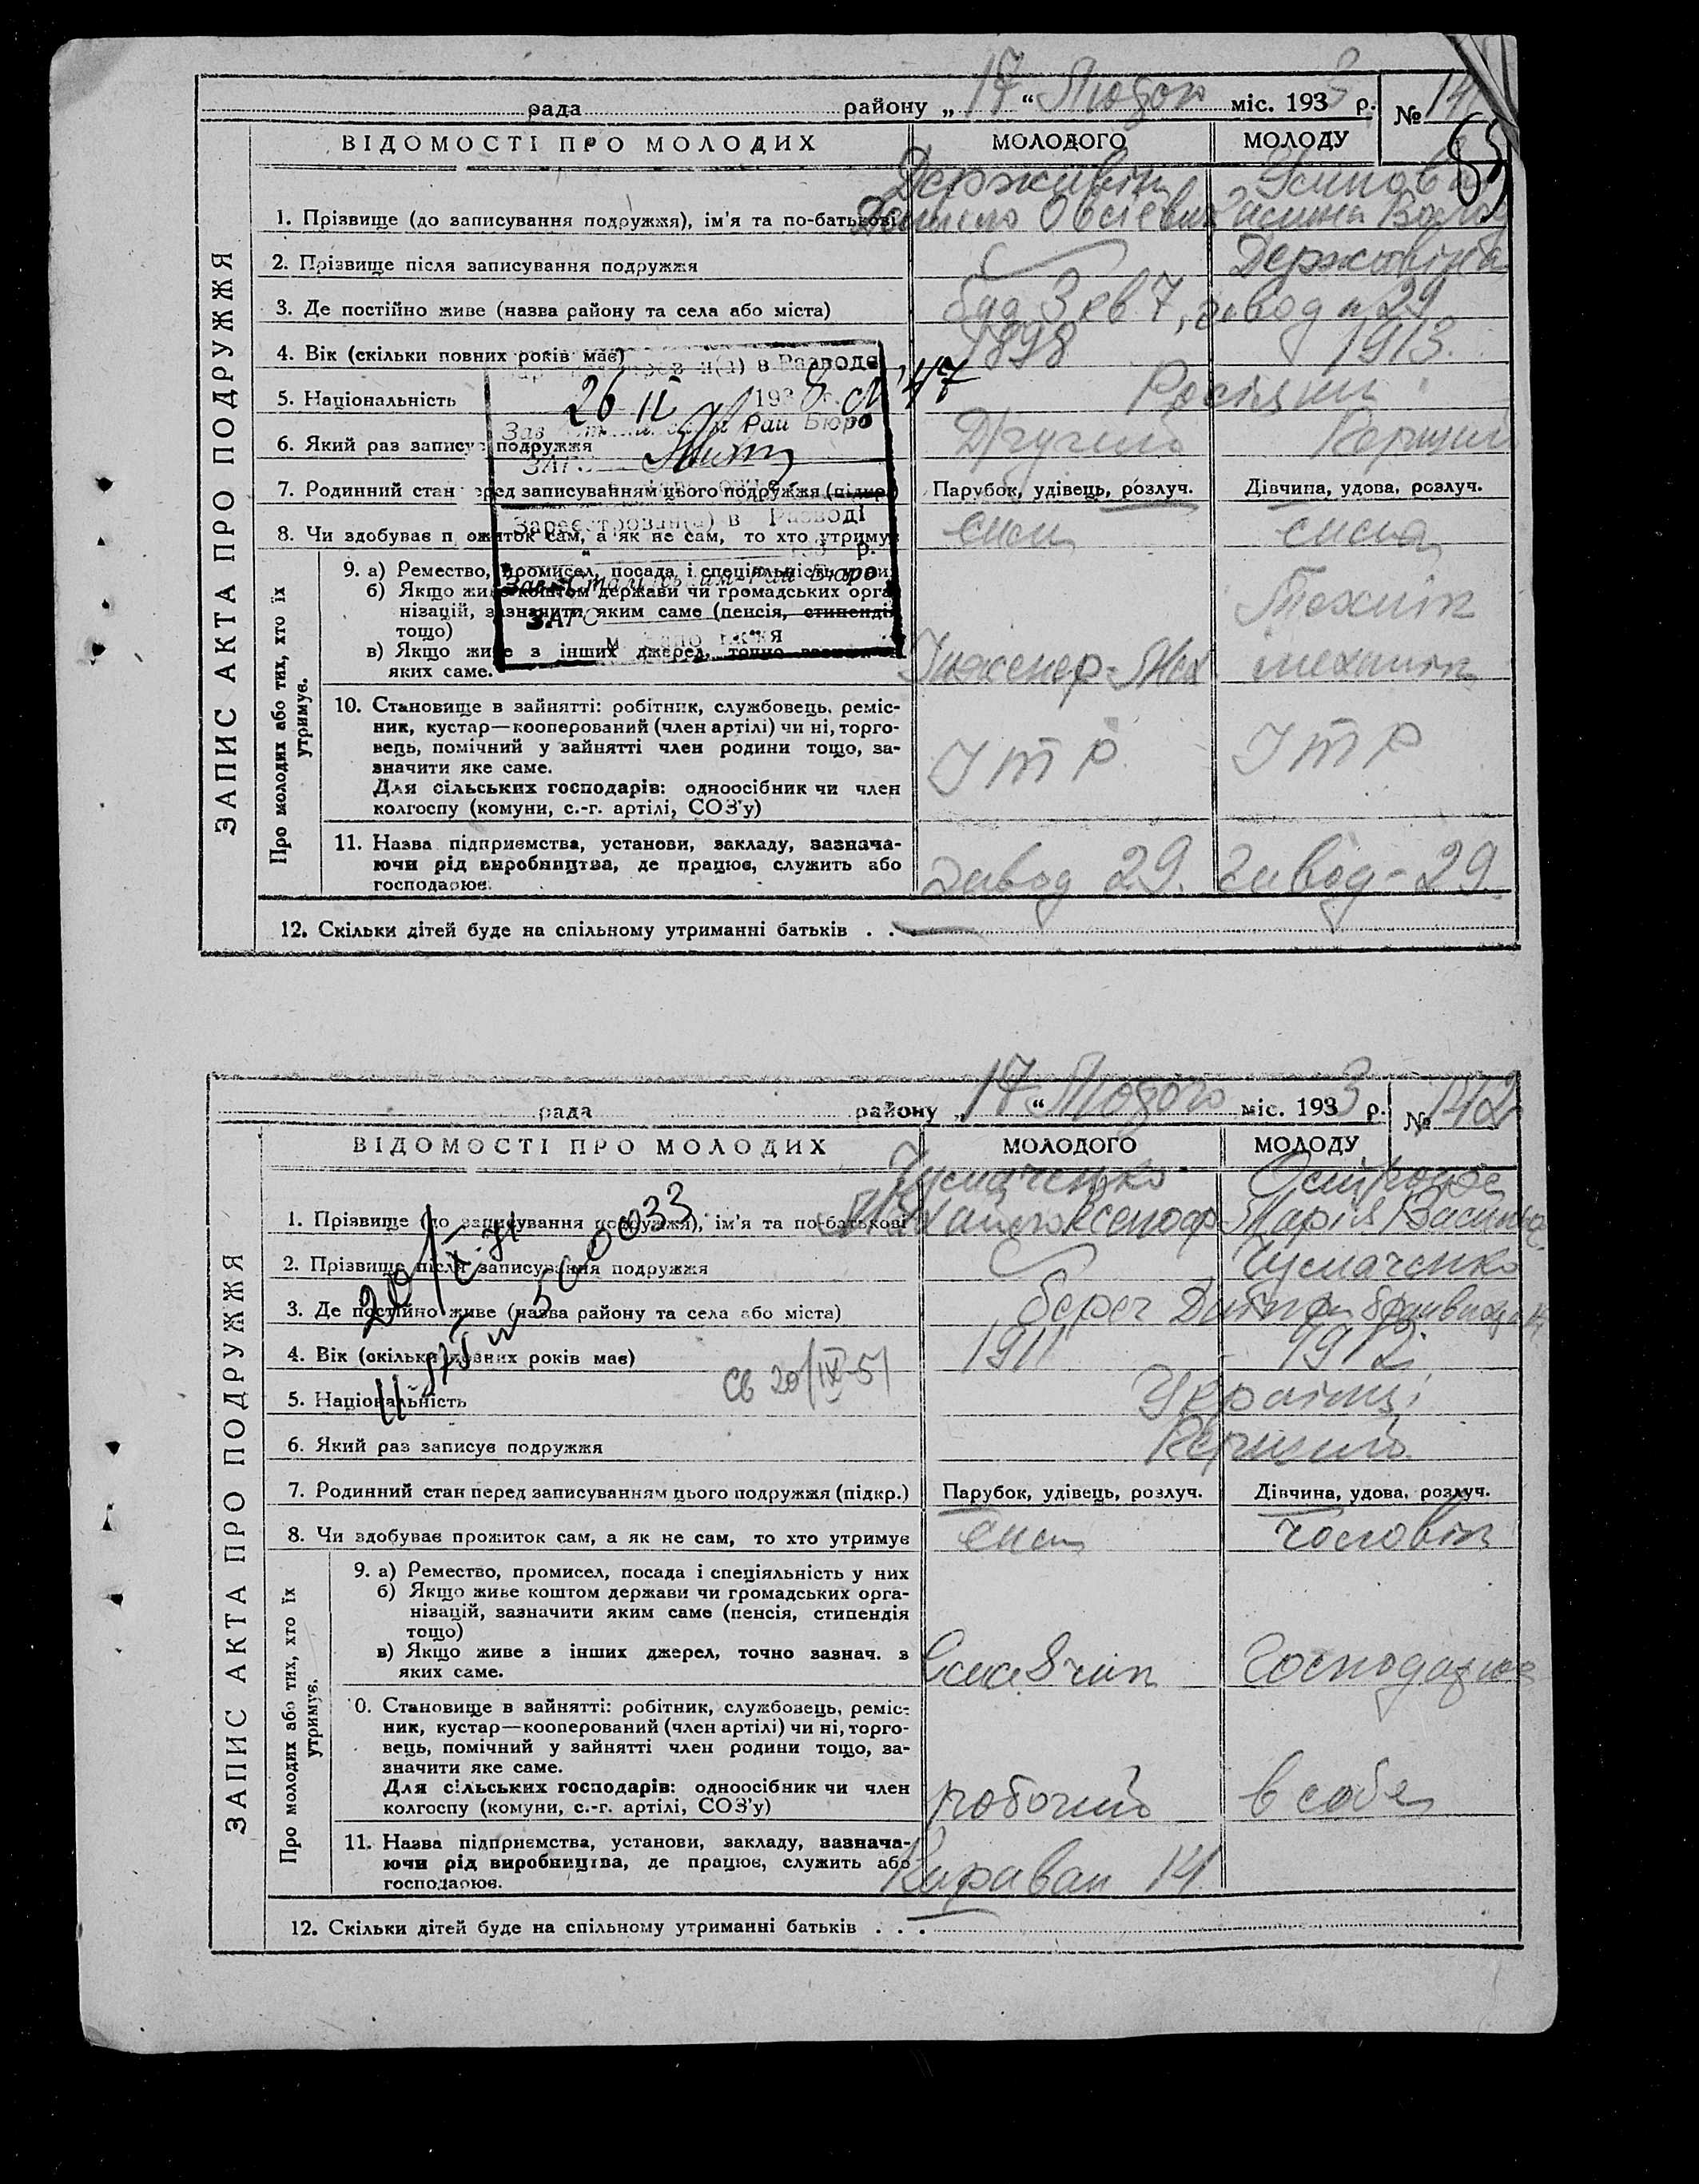 рада району „ 17 “ Лютого міс. 1933 р. № 141
85
ВІДОМОСТІ ПРО МОЛОДИХ МОЛОДОГО МОЛОДУ
ЗАПИС АКТА ПРО ПОДРУЖЖЯ
1. Прізвище (до записування подружжя), ім'я та по-батькові
2. Прізвище після записування подружжя
3. Де постійно живе (назва району та села або міста) буд 3 кв 7, завод № 29
4. Вік (скільки повних років має) 1898 1913
в Разводе
26 II 193 № 47
Рай Бюро
ЗАГС
5. Національність Росіяни
6. Який раз записує подружжя Другий Перший
7. Родинний стан перед записуванням цього подружжя (підкр.) Парубок, удівець, розлуч. Дівчина, удова, розлуч.
Зареєстрован(а) в Разводі
193 р.
Рай Бюро
ЗАГС
8. Чи здобуває прожиток сам, а як не сам, то хто утримує сам сама
Про молодих або тих, хто їх утримує.
9. а) Ремество, промисел, посада і спеціяльність у них
б) Якщо живе коштом держави чи громадських орга-
нізацій, зазначити яким саме (пенсія, стипендія
тощо)
в) Якщо живе з інших джерел, точно
яких саме. Інженер-Мех Технік механік
10. Становище в зайнятті: робітник, службовець, реміс-
ник, кустар—кооперований (член артілі) чи ні, торго-
вець, помічний у зайнятті член родини тощо, за-
значити яке саме. ІТР ІТР
Для сільських господарів: одноосібник чи член
колгоспу (комуни, с.-г. артілі, СОЗ'у)
11. Назва підприємства, установи, закладу, зазнача-
ючи рід виробництва, де працює, служить або
господарює. завод 29. завод-29.
12. Скільки дітей буде на спільному утриманні батьків . . .
рада району „ 17 “ Лютого міс. 1933 р. № 142
ВІДОМОСТІ ПРО МОЛОДИХ МОЛОДОГО МОЛОДУ
ЗАПИС АКТА ПРО ПОДРУЖЖЯ
1. Прізвище (до записування подружжя), ім'я та по-батькові Марія
2. Прізвище після записування подружжя Чумаченко
3. Де постійно живе (назва району та села або міста) берег
4. Вік (скільки повних років має) 1911 1912
св 20/IX-51
5. Національність Українці
6. Який раз записує подружжя Перший
7. Родинний стан перед записуванням цього подружжя (підкр.) Парубок, удівець, розлуч. Дівчина, удова, розлуч.
8. Чи здобуває прожиток сам, а як не сам, то хто утримує сам чоловік
Про молодих або тих, хто їх утримує.
9. а) Ремество, промисел, посада і спеціяльність у них
б) Якщо живе коштом держави чи громадських орга-
нізацій, зазначити яким саме (пенсія, стипендія
тощо)
в) Якщо живе з інших джерел, точно зазнач. з
яких саме.
0. Становище в зайнятті: робітник, службовець, реміс-
ник, кустар—кооперований (член артілі) чи ні, торго-
вець, помічний у зайнятті член родини тощо, за-
значити яке саме.
Для сільських господарів: одноосібник чи член
колгоспу (комуни, с.-г. артілі, СОЗ'у) робочий в собе
11. Назва підприємства, установи, закладу, зазнача-
ючи рід виробництва, де працює, служить або
господарює. Караван 14
12. Скільки дітей буде на спільному утриманні батьків . . .